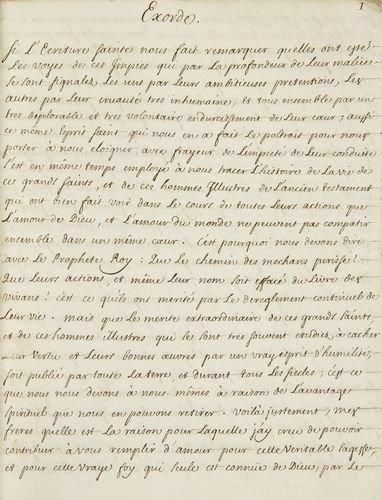 1
Exorde.
Si L'Ecriture sainte nous fait remarquer quelles ont esté
Les voyes de ces Impies qui par La profondeur de Leur malice
Se sont signalez Les uns par Leurs ambitieuses pretentions, Les
autres par Leur cruauté tres inhumaine, et tous ensemble par un
tres deplorable et tres volontaire endurcissement de Leur cœur; aussi
ce même Esprit saint qui nous en a fait Le portrait pour nous
porter à nous eloigner avec frayeur de L'impieté de Leur conduite
s'est en même temps employé à nous tracer L'histoire de La vie de
ces grands saints, et de ces hommes Illustres de L'ancien testament
qui ont bien fait voir dans Le cours de toutes Leurs actions que
L'amour de Dieu, et L'amour du monde ne peuvent pas compatir
ensemble dans un même cœur. C'est pourquoi nous devons dire
avec Le Prophete Roy: Que Le chemin des mechans perisse!
Que Leurs actions, et même Leur nom soit effacé du Livre des
vivans! c'est ce qu'ils ont merité par Le dereglement continuel de
Leur vie. mais que Le merite extraordinaire de ces grands saints
et de ces hommes illustres qui se sont tres souvent etudiez à cacher
Leur vertu et Leurs bonnes œuvres par un vray esprit d'humilité,
soit publié par toute La terre et durant tous Les siecles; c'est ce
que nous nous devons à nous-mêmes à raison de L'avantage
spirituel que nous en pouvons retirer. Voilà justement, mes
freres quelle est La raison pour Laquelle j'ay creu de pouvoir
contribuer à vous remplir d'amour pour cette veritable sagesse,
et pour cette vraye foy qui seule est connuë de Dieu, par Le